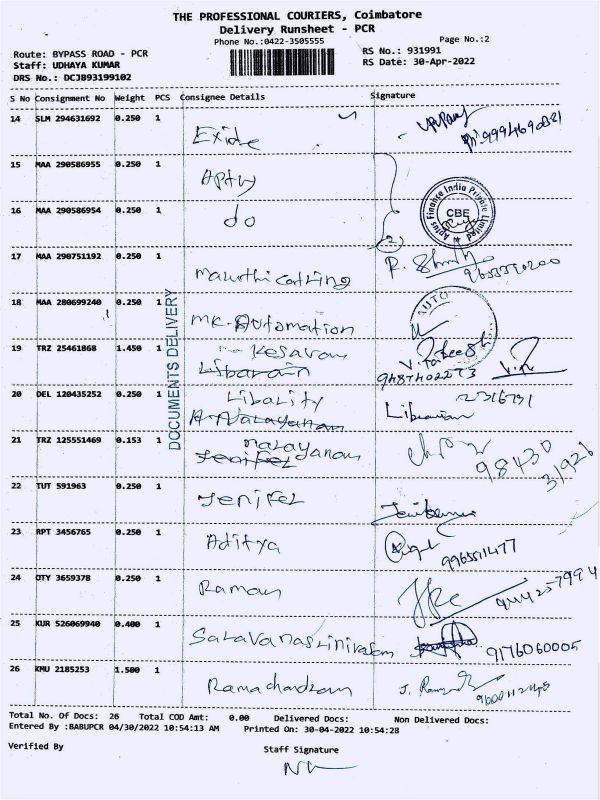 THE PROFESSIONAL COURIERS, Coimbatore
Delivery Runsheet - PCR
Phone No.:0422-3505555
Page No.:2
Route: BYPASS ROAD - PCR
RS No.: 931991
Staff: UDHAYA KUMAR
RS Date: 30-Apr-2022
DRS No.: DCJ893199102
S No Consignment No Weight PCS Consignee Details Signature
14 SLM 294631692 0.250 1 Exide
15 MAA 290586955 0.250 1 Aptus
16 MAA 290586954 0.250 1 do
2
Aptus Finance India Private Limited
CBE
17 MAA 290751192 0.250 1 Maruthi Catring R.
18 MAA 280699240 0.250 1 MK Automation
AUTO
DOCUMENTS DELIVERY
19 TRZ 25461868 1.450 1 Kesavan
20 DEL 120435252 0.250 1 Libarity Librarian
21 TRZ 125551469 0.153 1 narayanan 98430
31921
22 TUT 591963 0.250 1 Jenifer
23 RPT 3456765 0.250 1 Aditya
24 OTY 3659378 0.250 1 Raman
25 KUR 526069940 0.400 1 Saravanasrinivasan 9176060005
26 KMU 2185253 1.500 1 Ramachandran J.
Total No. Of Docs: 26 Total COD Amt: 0.00 Delivered Docs: Non Delivered Docs:
Entered By :BABUPCR 04/30/2022 10:54:13 AM Printed On: 30-04-2022 10:54:28
Verified By
Staff Signature